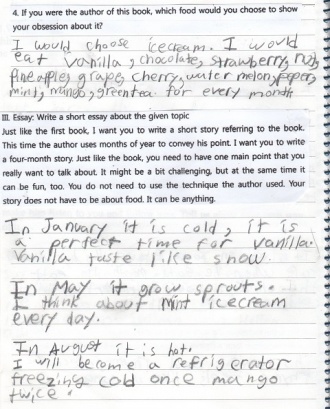 4. If you were the author of this book, which food would you choose to show
your obsession about it?
I would choose icecream. I would
eat vanilla, chocolate, strawberry, nut,
Pineapple, grape, cherry, water melon, peper,
mint, mango, green tea for every month
III. Essay: Write a short essay about the given topic
Just like the first book, I want you to write a short story referring to the book.
This time the author uses months of year to convey his point. I want you to write
a four-month story. Just like the book, you need to have one main point that you
really want to talk about. It might be a bit challenging, but at the same time it
can be fun, too. You do not need to use the technique the author used. Your
story does not have to be about food. It can be anything.
In January it is cold, it is
a perfect time for vanilla.
Vanilla taste like snow.
In May it grow sprouts.
I think about mint icecream
every day.
In August it is hot.
I will become a refrigerator
freezing cold once mango
twice.